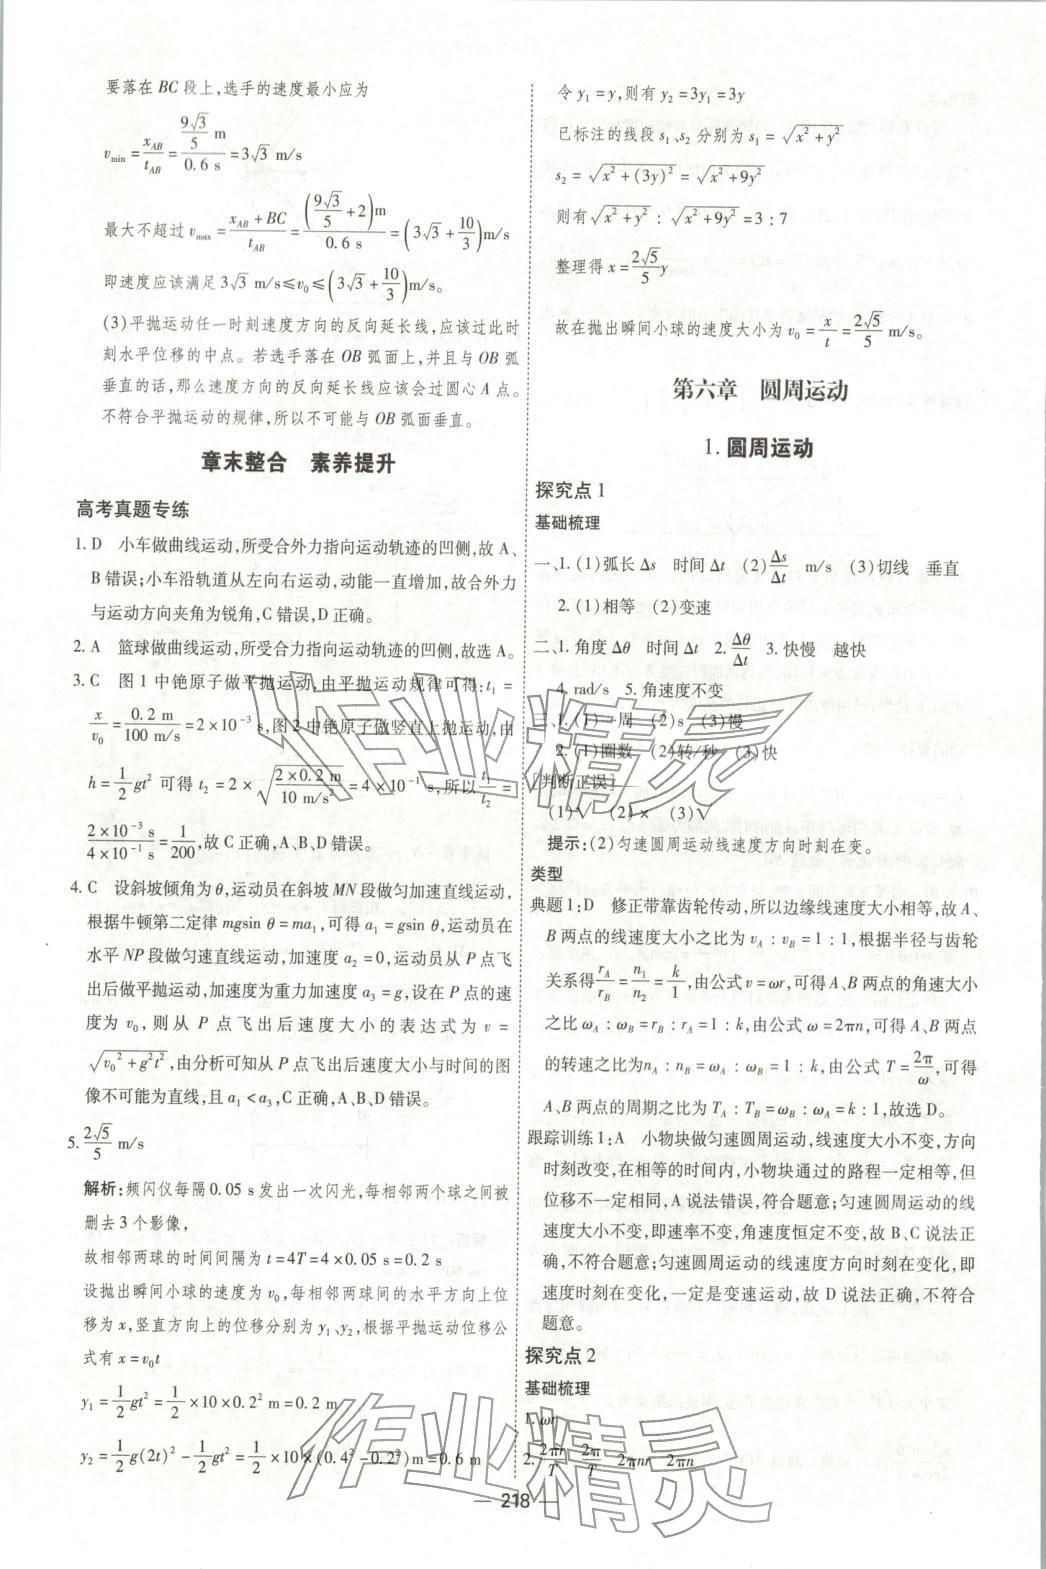 要落在 BC 段上,选手的速度最小应为
v_min = x_AB/t_AB = (9√3/5 m)/(0.6 s) = 3√3 m/s
最大不超过 v_max = (x_AB + BC)/t_AB = ((9√3/5 + 2) m)/(0.6 s) = (3√3 + 10/3) m/s
即速度应该满足 3√3 m/s ≤ v₀ ≤ (3√3 + 10/3) m/s。
(3)平抛运动任一时刻速度方向的反向延长线,应该过此时
刻水平位移的中点。若选手落在 OB 弧面上,并且与 OB 弧
垂直的话,那么速度方向的反向延长线应该会过圆心 A 点。
不符合平抛运动的规律,所以不可能与 OB 弧面垂直。
章末整合 素养提升
高考真题专练
1. D 小车做曲线运动,所受合外力指向运动轨迹的凹侧,故 A、
B 错误;小车沿轨道从左向右运动,动能一直增加,故合外力
与运动方向夹角为锐角,C 错误,D 正确。
2. A 篮球做曲线运动,所受合力指向运动轨迹的凹侧,故选 A。
3. C 图 1 中铯原子做平抛运动,由平抛运动规律可得: t₁ =
x/v₀ = 0.2 m/100 m/s = 2×10⁻³ s,图 2 中铯原子做竖直上抛运动,由
h = 1/2 gt² 可得 t₂ = 2×√(2×0.2 m/10 m/s²) = 4×10⁻¹ s,所以 t₁/t₂ =
2×10⁻³ s/4×10⁻¹ s = 1/200,故 C 正确,A、B、D 错误。
4. C 设斜坡倾角为 θ,运动员在斜坡 MN 段做匀加速直线运动,
根据牛顿第二定律 mgsin θ = ma₁,可得 a₁ = gsin θ,运动员在
水平 NP 段做匀速直线运动,加速度 a₂ = 0,运动员从 P 点飞
出后做平抛运动,加速度为重力加速度 a₃ = g,设在 P 点的速
度为 v₀,则从 P 点飞出后速度大小的表达式为 v =
√(v₀² + g²t²),由分析可知从 P 点飞出后速度大小与时间的图
像不可能为直线,且 a₁ < a₃,C 正确,A、B、D 错误。
5. 2√5/5 m/s
解析:频闪仪每隔 0.05 s 发出一次闪光,每相邻两个球之间被
删去 3 个影像,
故相邻两球的时间间隔为 t = 4T = 4×0.05 s = 0.2 s
设抛出瞬间小球的速度为 v₀,每相邻两球间的水平方向上位
移为 x,竖直方向上的位移分别为 y₁、y₂,根据平抛运动位移公
式有 x = v₀t
y₁ = 1/2 gt² = 1/2 ×10×0.2² m = 0.2 m
y₂ = 1/2 g(2t)² − 1/2 gt² = 1/2 ×10×(0.4² − 0.2²) m = 0.6 m
令 y₁ = y,则有 y₂ = 3y₁ = 3y
已标注的线段 s₁、s₂ 分别为 s₁ = √(x² + y²)
s₂ = √(x² + (3y)²) = √(x² + 9y²)
则有 √(x² + y²) : √(x² + 9y²) = 3 : 7
整理得 x = 2√5/5 y
故在抛出瞬间小球的速度大小为 v₀ = x/t = 2√5/5 m/s。
第六章 圆周运动
1. 圆周运动
探究点 1
基础梳理
一、1. (1)弧长 Δs 时间 Δt (2) Δs/Δt m/s (3)切线 垂直
2. (1)相等 (2)变速
二、1. 角度 Δθ 时间 Δt 2. Δθ/Δt 3. 快慢 越快
4. rad/s 5. 角速度不变
三、1. (1)一周 (2)s (3)慢
2. (1)圈数 (2)转/秒 (3)快
[判断正误]
(1)√ (2)× (3)√
提示:(2)匀速圆周运动线速度方向时刻在变。
类型
典题 1:D 修正带靠齿轮传动,所以边缘线速度大小相等,故 A、
B 两点的线速度大小之比为 v_A : v_B = 1 : 1,根据半径与齿轮
关系得 r_A/r_B = n₁/n₂ = k/1,由公式 v = ωr,可得 A、B 两点的角速度大小
之比 ω_A : ω_B = r_B : r_A = 1 : k,由公式 ω = 2πn,可得 A、B 两点
的转速之比为 n_A : n_B = ω_A : ω_B = 1 : k,由公式 T = 2π/ω,可得
A、B 两点的周期之比为 T_A : T_B = ω_B : ω_A = k : 1,故选 D。
跟踪训练 1:A 小物块做匀速圆周运动,线速度大小不变,方向
时刻改变,在相等的时间内,小物块通过的路程一定相等,但
位移不一定相同,A 说法错误,符合题意;匀速圆周运动的线
速度大小不变,即速率不变,角速度恒定不变,故 B、C 说法正
确,不符合题意;匀速圆周运动的线速度方向时刻在变化,即
速度时刻在变化,一定是变速运动,故 D 说法正确,不符合
题意。
探究点 2
基础梳理
1. ωr
2. 2πr/T 2π/T 2πnr 2πn
— 218 —
作业精灵
作业精灵